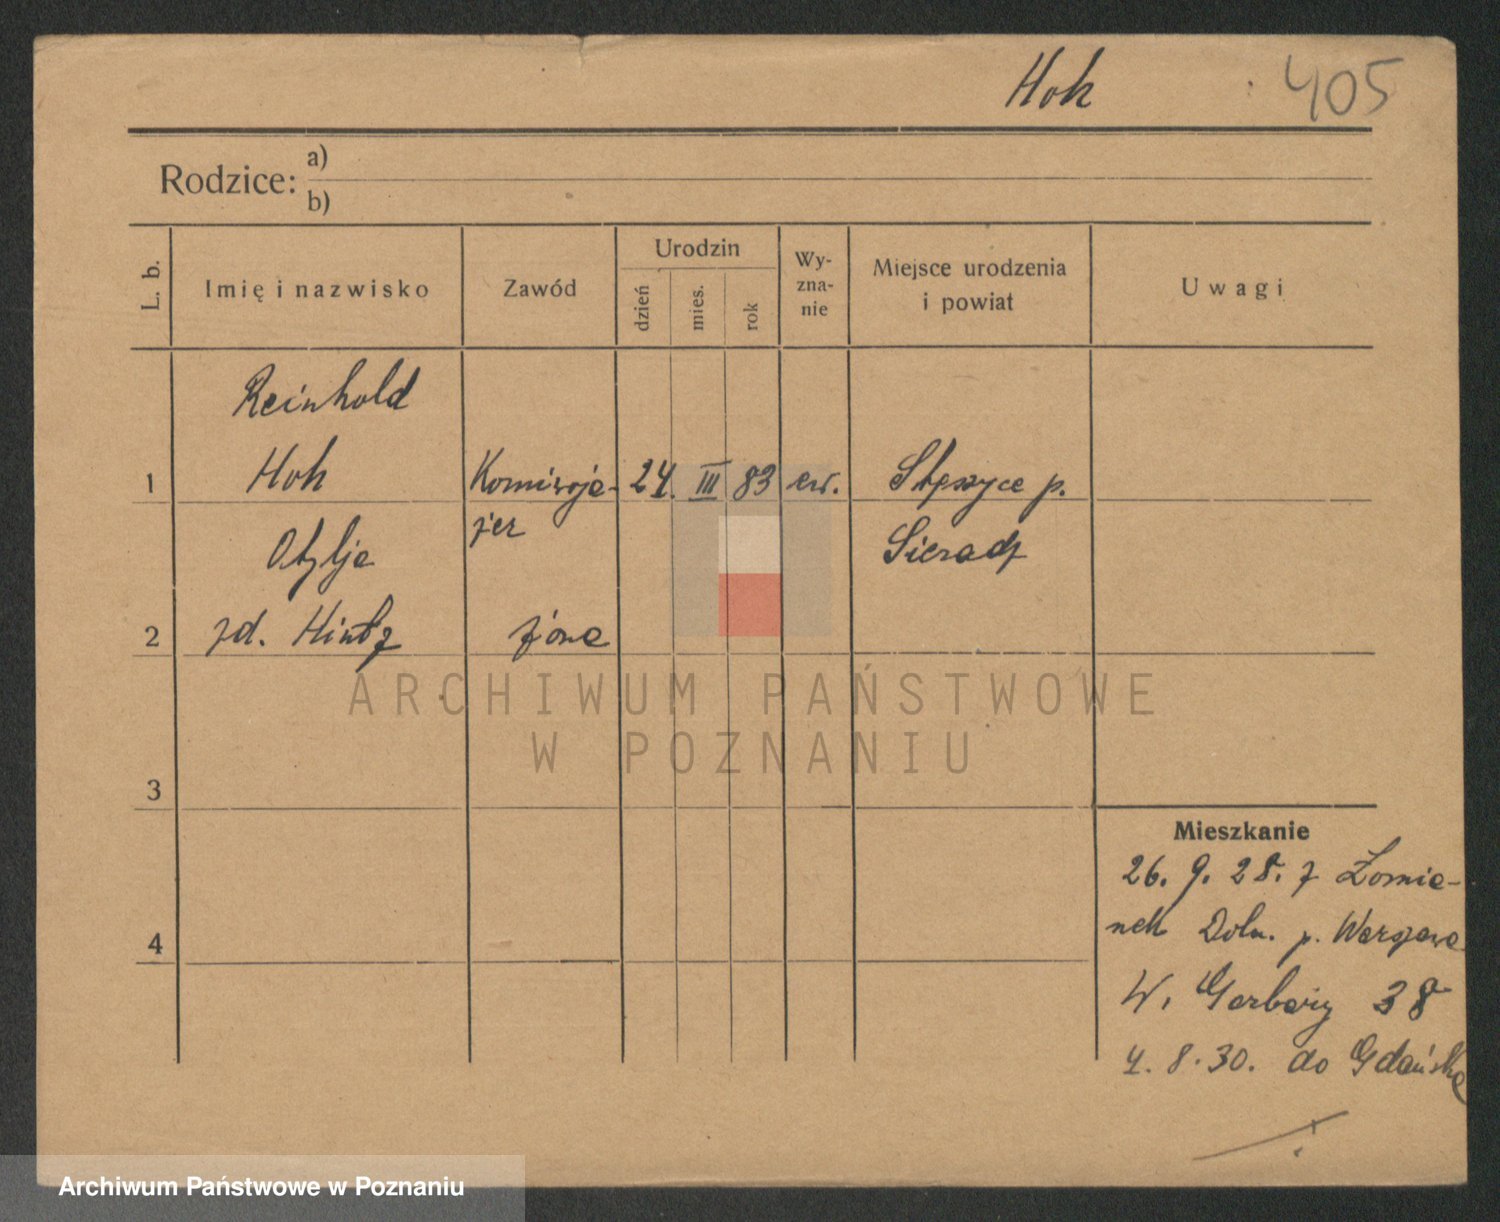 Hoh 405
Rodzice: a)
b)
L. b. Imię i nazwisko Zawód Urodzin dzień mies. rok Wy-zna-nie Miejsce urodzenia i powiat Uwagi
Reinhold
1 Hoh Komiwoja- 24. III 83 ew. Stęszyce p.
jer Sieradz
Otylja
2 zd. Hintz żona
3
4
Mieszkanie
26. 9. 28. z Łomia-
nek Doln. p. Warszawa
W. Garbary 38
4. 8. 30. do Gdańska
ARCHIWUM PAŃSTWOWE
W POZNANIU
Archiwum Państwowe w Poznaniu